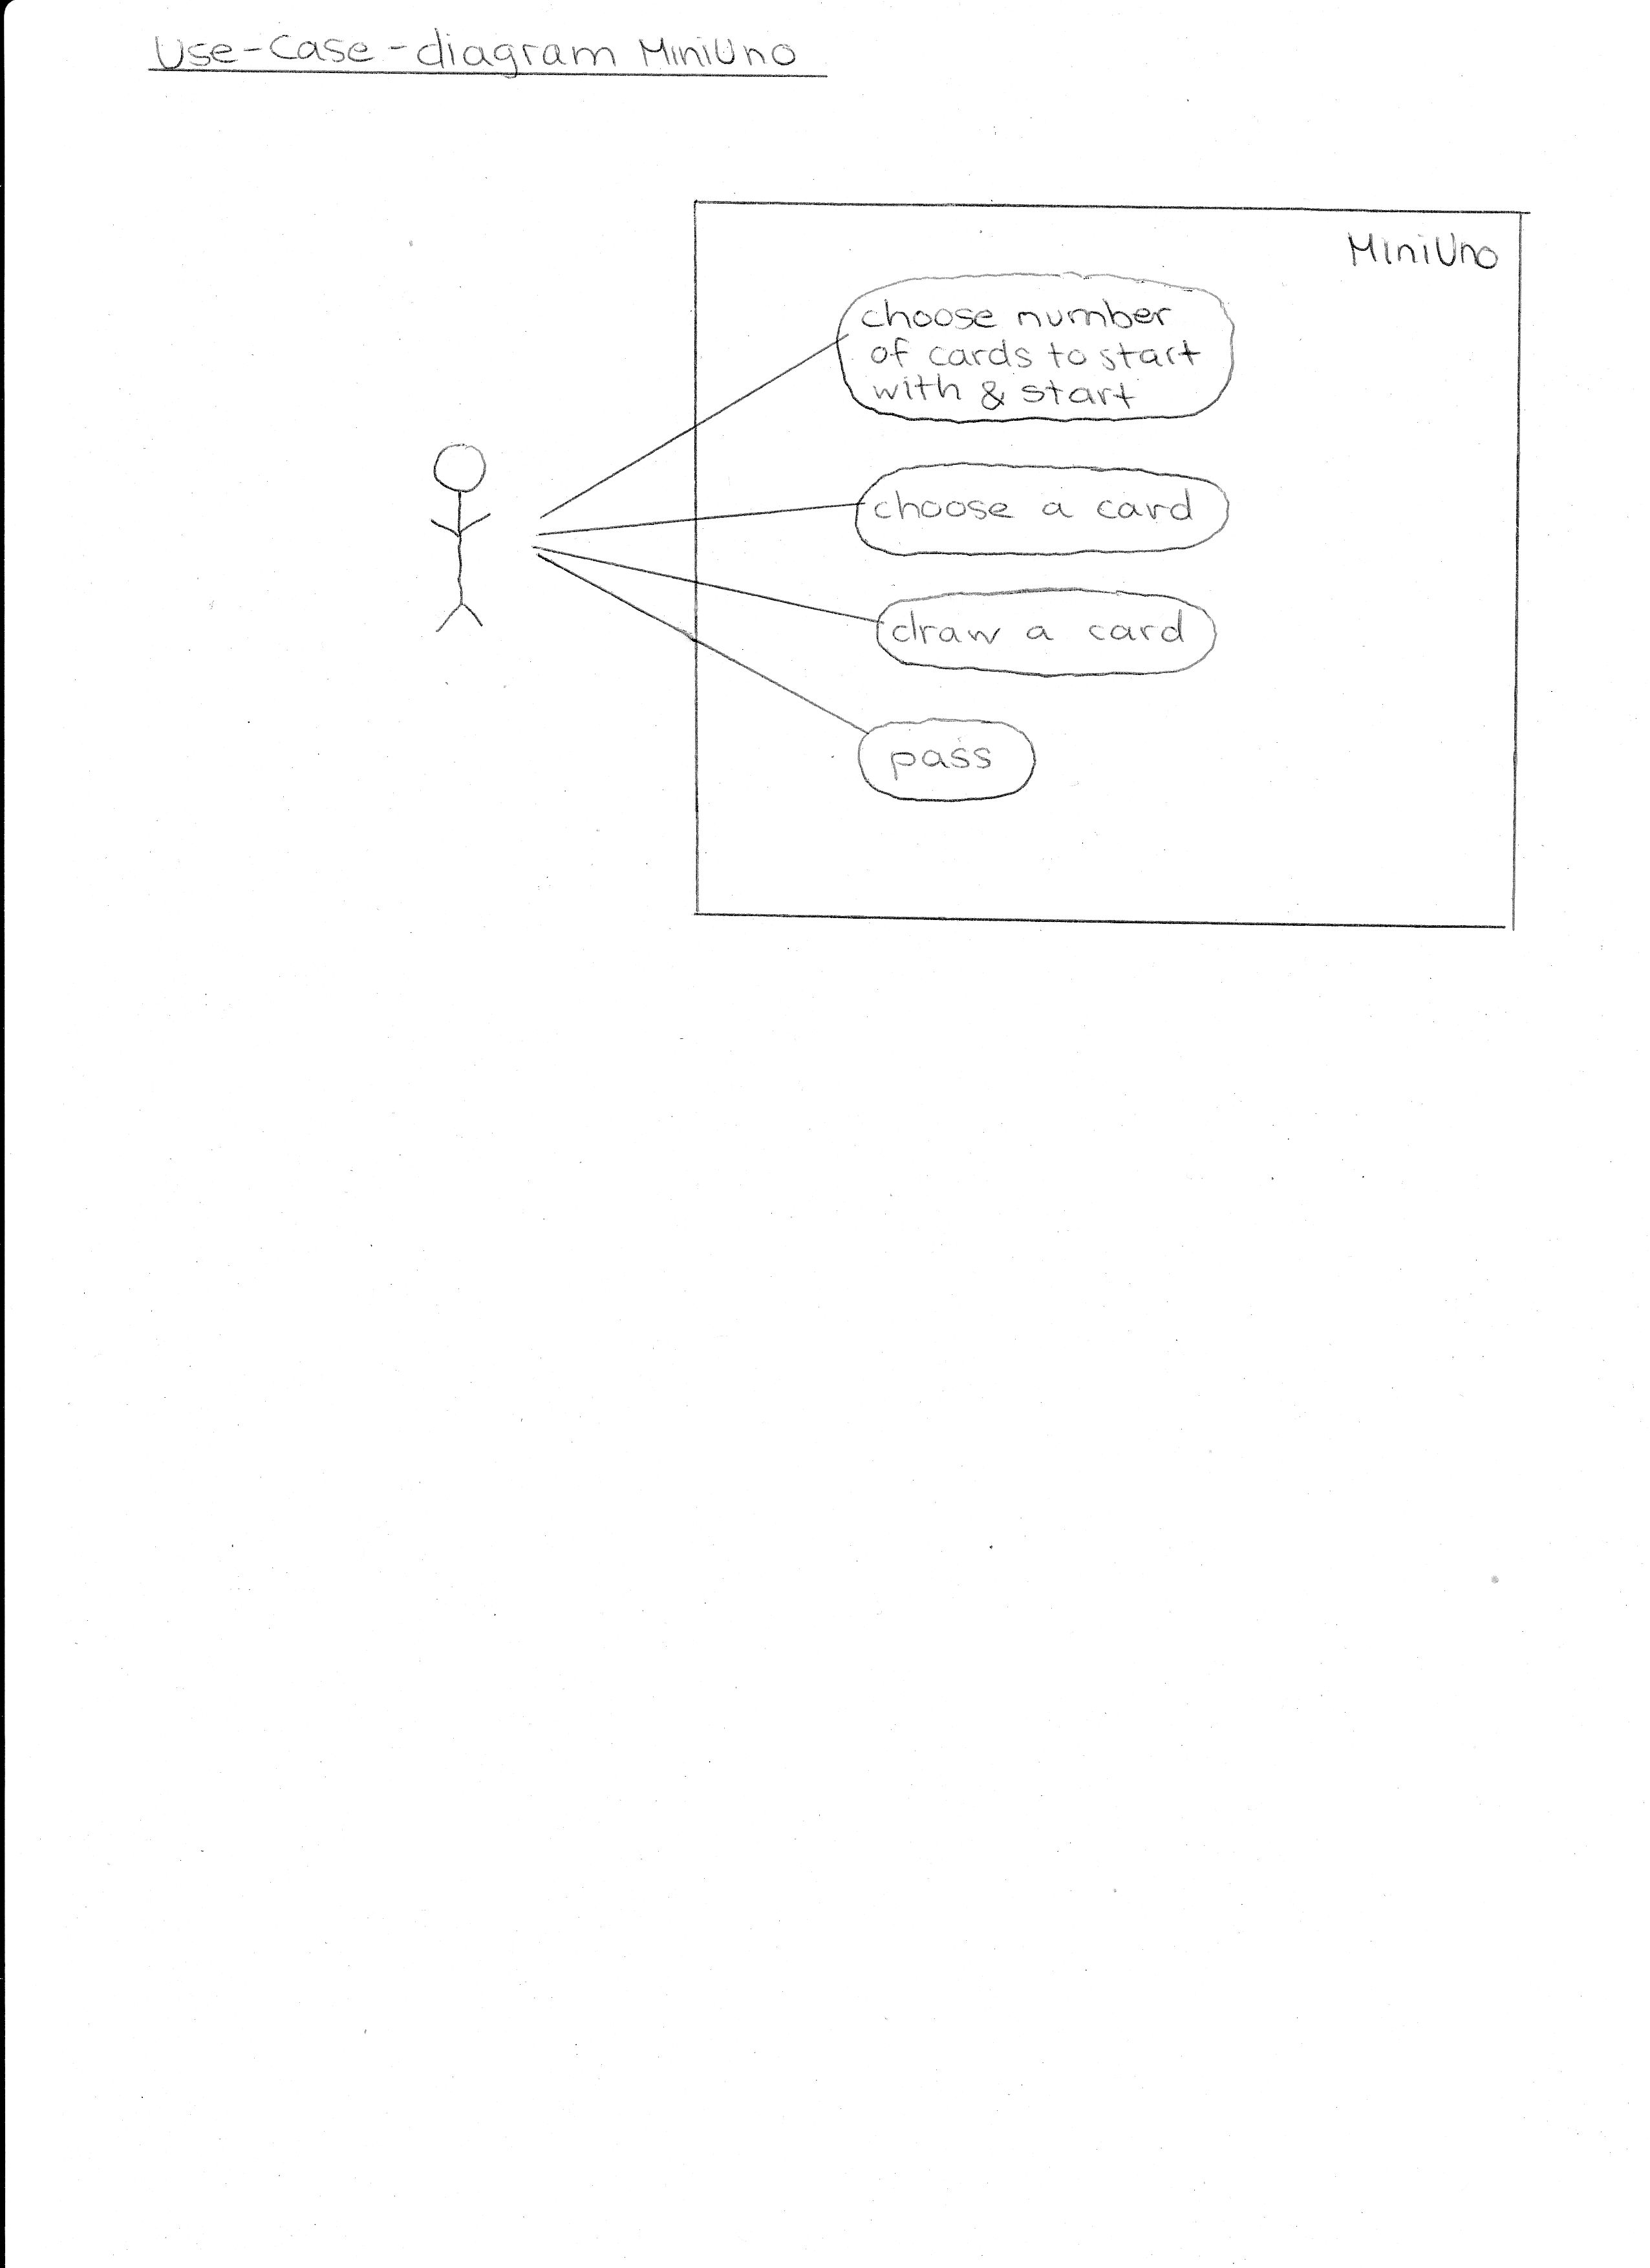 Use-Case-diagram MiniUno
MiniUno
choose number
of cards to start
with & start
choose a card
draw a card
pass